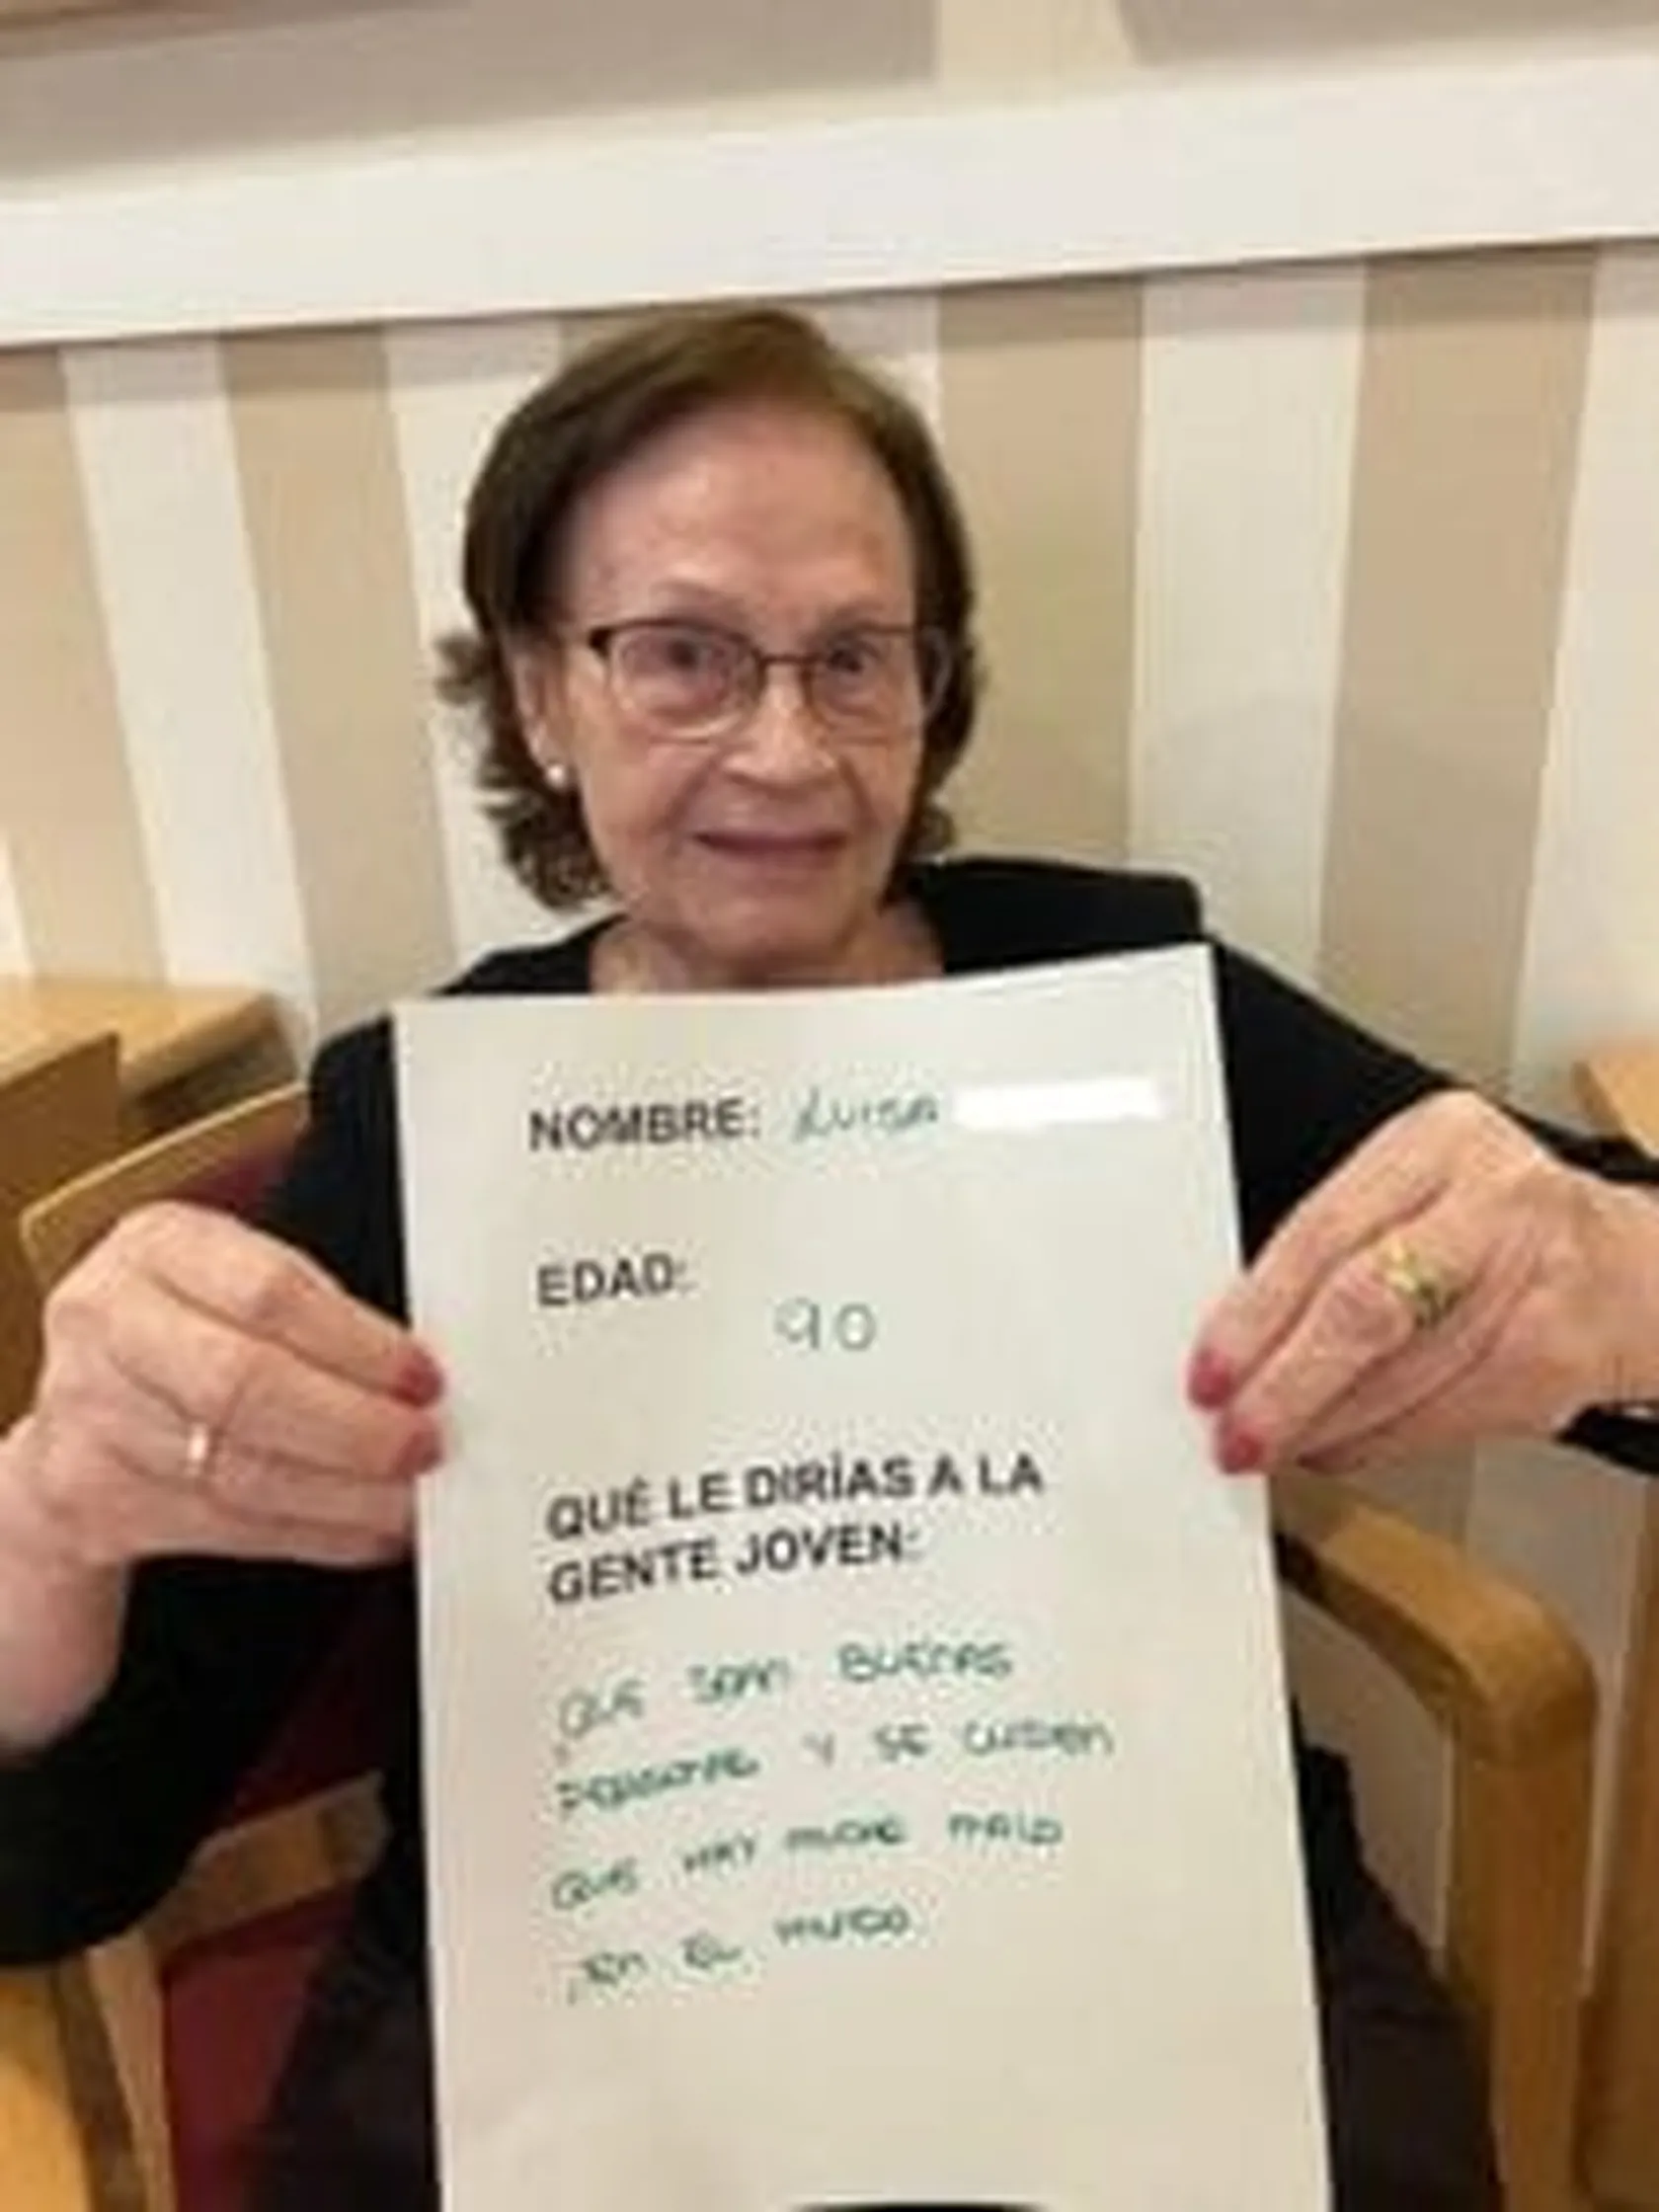 NOMBRE: LUISA
EDAD:
90
QUÉ LE DIRÍAS A LA
GENTE JOVEN:
QUE SEAN BUENAS
PERSONAS Y SE CUIDEN
QUE HAY MUCHO MALO
EN EL MUNDO